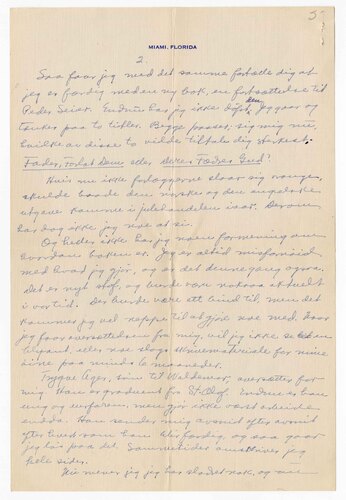 5
MIAMI, FLORIDA
2.
Saa faar jeg med det samme fortælle dig at
jeg er færdig med en ny bok, en fortsættelse til
Peder Seier. Endnu har jeg ikke døpt den. Jeg gaar og
tænker paa to titler. Begge passer, sig mig nu,
hvilken av disse to vilde tiltale dig sterkest:
Fader, Forlat Dem eller Deres Fædres Gud?
Hvis nu ikke forlæggerne slaar sig vrange,
skulde baade den norske og den engelske
utgave komme i julehandelen iaar. Derom
har dog ikke jeg noe at si.
Og heller ikke har jeg noen formening om
hvordan boken er. Jeg er altid misfornøid
med hvad jeg gjør, og er det denne gang ogsaa.
Det er nyt stof, og burde være noksaa aktuelt
i vor tid. Der burde være ett bind til, men det
kommer jeg vel neppe til at gjøre noe med. Faar
jeg faar oversættelsen fra mig, vil jeg ikke se en
blyant, eller noe slags skrivemateriale for mine
øine paa mindst to maaneder.
Trygve Ager, søn til Waldemar, oversætter for
mig. Han er graduent fra St. Olaf. Endnu er han
ung og uerfaren, men gjør ikke værst arbeide
endda. Han sender mig avsnit efter avsnit
efter hvert som han blir færdig, og saa gaar
jeg løs paa det. Sommetider omskriver jeg
hele sider.
Nu mener jeg jeg har sladret nok, og